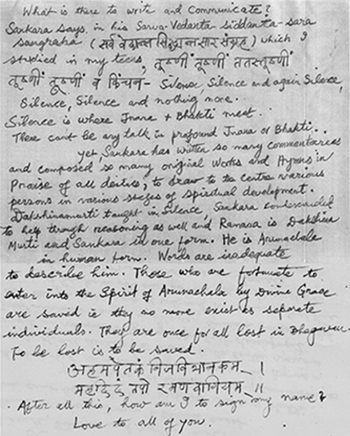 What is there to write and Communicate?
Sankara says, in his Sarva-Vedanta Siddanta-sara
sangraha (सर्व वेदान्त सिद्धान्तसार संग्रह) which I
studied in my teens, तूष्णीं तूष्णीं ततस्तूष्णीं
तूष्णीं तूष्णीं व किंचन - Silence, Silence and again Silence,
Silence, Silence and nothing more.
Silence is where Jnana & Bhakti meet.
There can't be any talk in profound Jnana or Bhakti..
yet, Sankara has written so many commentaries
and composed so many original Works and Hymns in
Praise of all deities, to draw to the centre various
persons in various stages of spiritual development.
Dakshinamurti taught in Silence, Sankara condescended
to help through reasoning as well and Ramana is Dakshina
Murti and Sankara in one form. He is Arunachala
in human form. Words are inadequate
to describe him. Those who are fortunate to
enter into the Spirit of Arunachala by Divine Grace
are saved ie they no more exist as separate
individuals. They are once for all lost in Bhagavan.
To be lost is to be saved.
अहमपेतकं
रमणवागियम् ॥
After all this, how am I to sign my name?
Love to all of you.